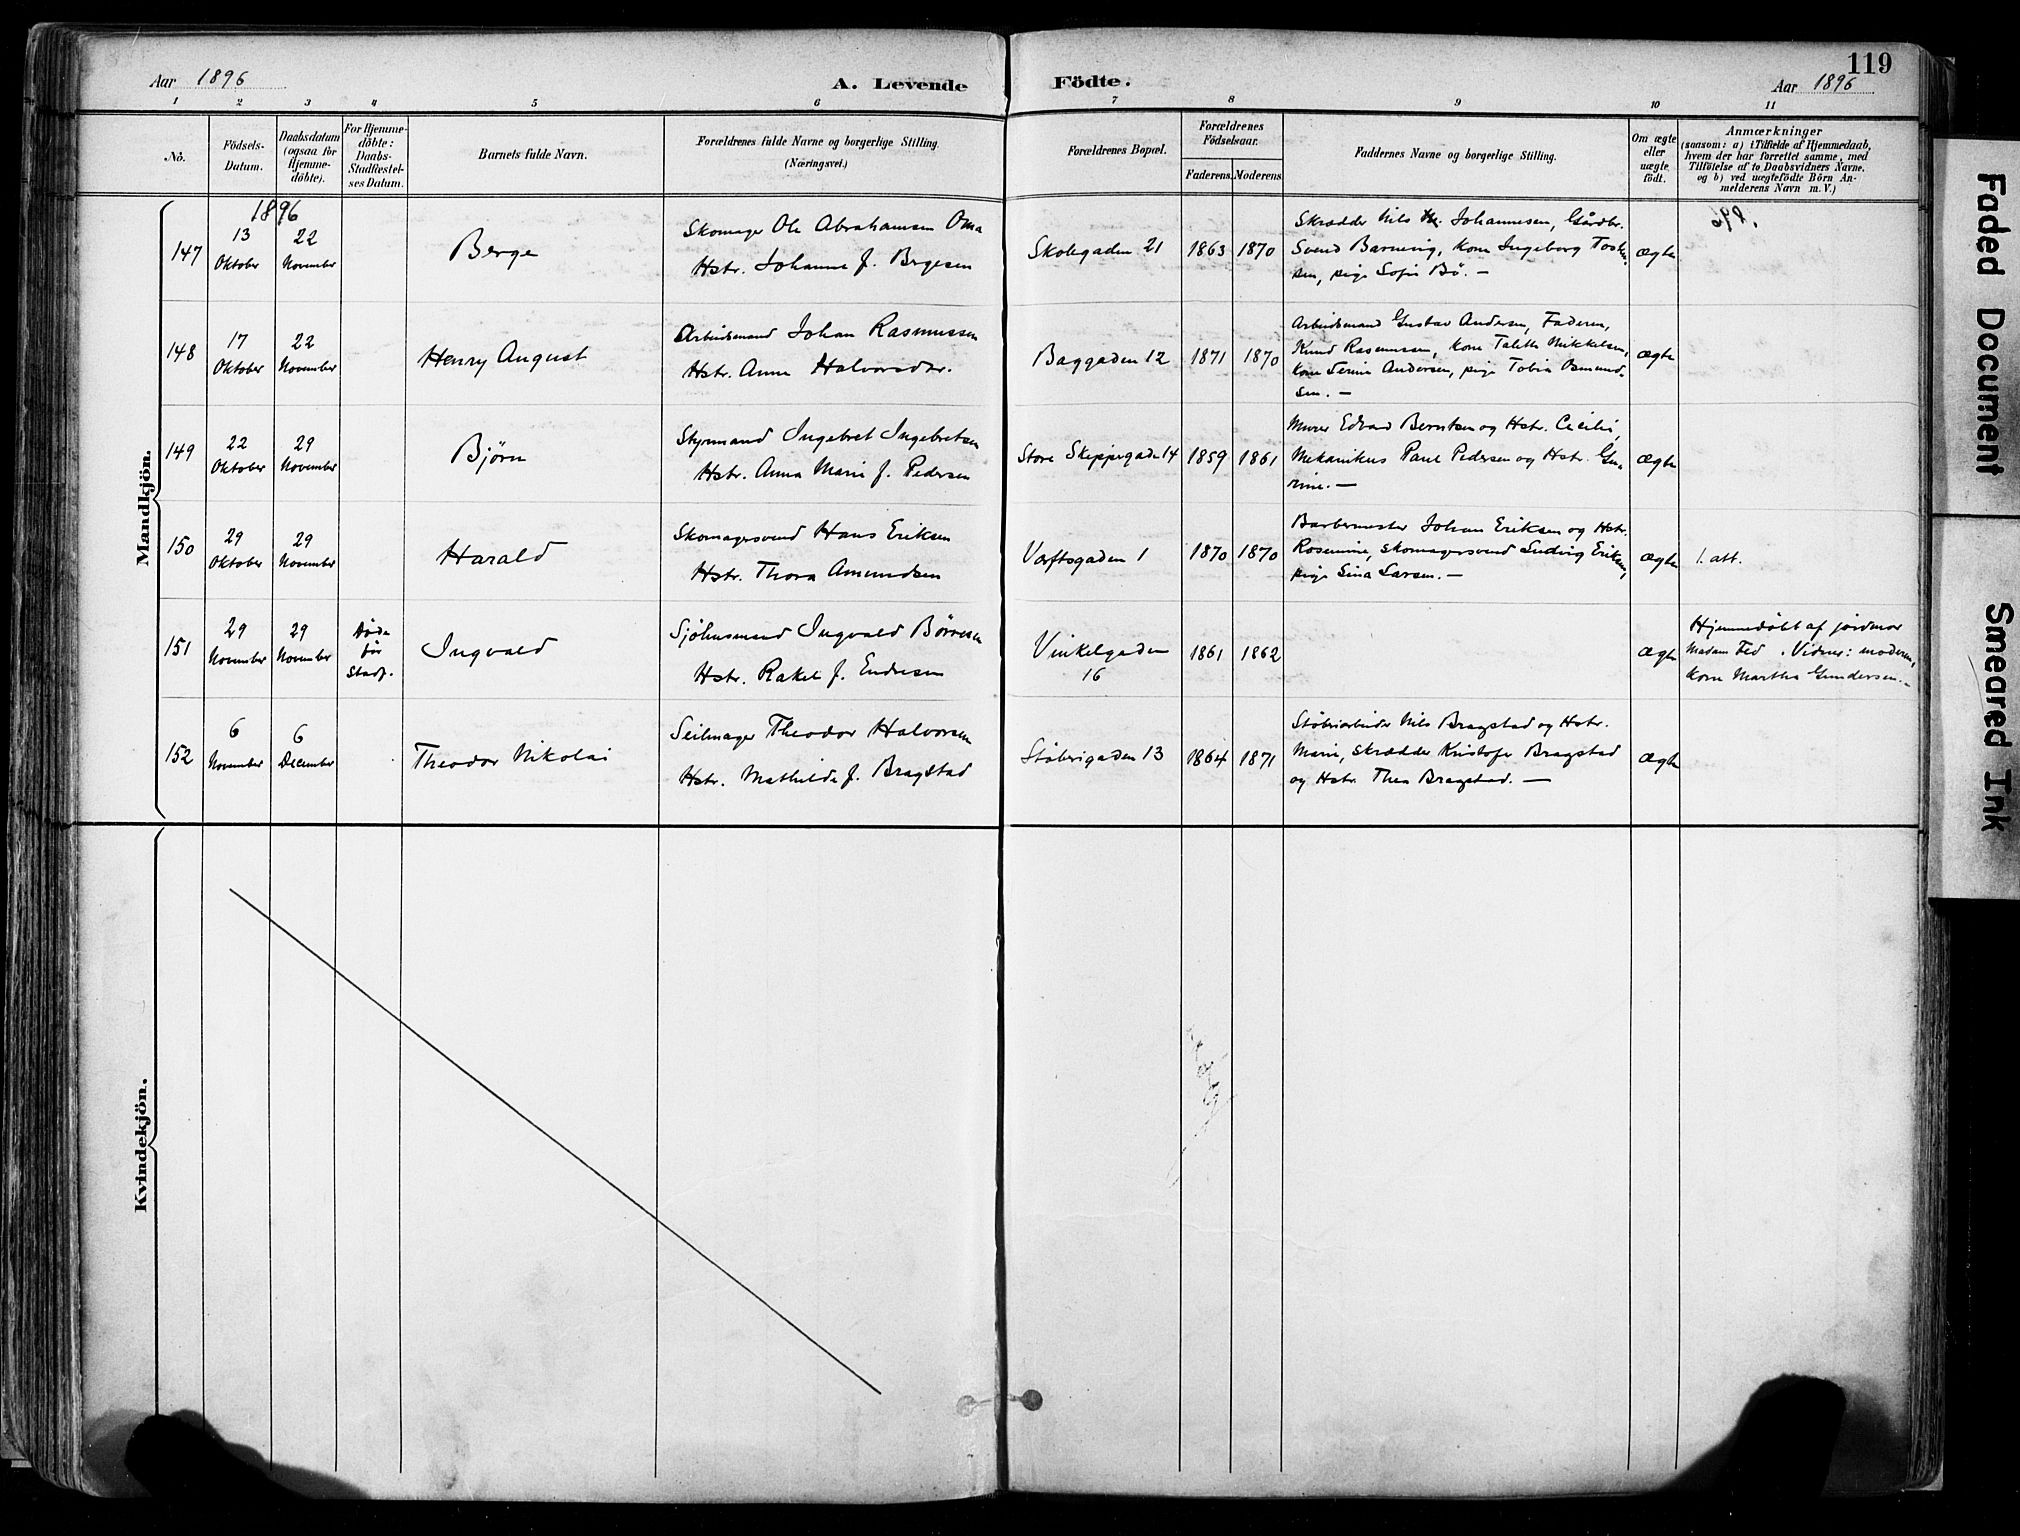 119
Aar 1896
A. Levende Födte.
Aar 1896
1 2 3 4 5 6 7 8 9 10 11
No.
Födsels-
Datum.
Daabsdatum
(ogsaa for
Hjemme-
döbte).
For Hjemme-
döbte:
Daabs-
Stadfæstel-
ses Datum.
Barnets fulde Navn.
Forældrenes fulde Navne og borgerlige Stilling.
(Næringsvei.)
Forældrenes Bopæl.
Forældrenes
Födselsaar.
Faderens.
Moderens.
Faddernes Navne og borgerlige Stilling.
Om ægte
eller
uægte
födt.
Anmærkninger
(saasom: a) i Tilfælde af Hjemmedaab,
hvem der har forrettet samme, med
Tilföielse af to Daabsvidners Navne,
og b) ved uægtefödte Börn An-
melderens Navn m. V.)
Mandkjön.
1896
147
13
Oktober
22
November
Berge
Skomager Ole Abrahamsen Oma
Hstr. Johanne f. Bergesen
Skolegaden 21
1863
1870
Skrædder Nils Johannesen, Gårdbr.
Svend Barneveig, kone Ingeborg
sen, pige Sofie Bö. —
ægte
148
17
Oktober
22
November
Henry August
Arbeidsmand Johan Rasmussen
Hstr. Anne Halvorsdtr.
Baggaden 12
1871
1870
Arbeidsmand Gustav Andersen, Faderen,
Knud Rasmussen, kone Talette Mikkelsen,
kone Serine Andersen, pige Tobia Osmund-
sen. —
ægte
149
22
Oktober
29
November
Bjørn
Styrmand Ingebret Ingebretsen
Hstr. Anna Marie f. Pedersen
Store Skippergaden 14
1859
1861
Murer Edvard Berntsen og Hstr. Cecilie,
Mekanikus Paul Pedersen og Hstr. Gu-
rine. —
ægte
150
29
Oktober
29
November
Harald
Skomagersvend Hans Eriksen
Hstr. Thora Amundsen
Værftsgaden 1
1870
1870
Barbermester Johan Eriksen og Hstr.
Rosemine, skomagersvend Ludvig Eriksen,
pige Sina Larsen. —
ægte
1. att.
151
29
November
29
November
døde
før
Stadf.
Ingvald
Sjöhusmand Ingvald Børresen
Hstr. Rakel f. Endresen
Vinkelgaden
16
1861
1862
ægte
Hjemmedøbt af jordmor
Madam Fed. Vidner: moderen,
kone Martha Gundersen. —
152
6
November
6
December
Theodor Nikolai
Seilmager Theodor Halvorsen
Hstr. Mathilde f. Bragstad
Støberigaden 13
1864
1871
Støberiarbeider Nils Bragstad og Hstr.
Marie, skrædder Kristofer Bragstad
og Hstr. Thea Bragstad. —
ægte
Kvindekjön.
Faded Document
Smeared Ink